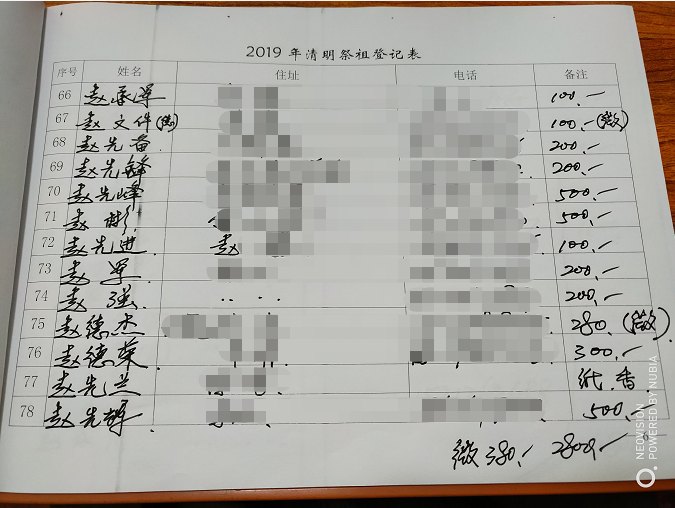 2019 年清明祭祖登记表
序号 姓名 住址 电话 备注
66 赵承军 100.-
67 赵文件 100.-(微)
68 赵先省 200.-
69 赵先锋 200.-
70 赵先峰 500.-
71 赵彬 500.-
72 赵先进 赵 100.-
73 赵军 200.-
74 赵强 200.-
75 赵德杰 280.(微)
76 赵德荣 300.-
77 赵先兰 纸.香
78 赵先 500.-
微 380.- 2800.-
NEOVISION
POWERED BY NUBIA